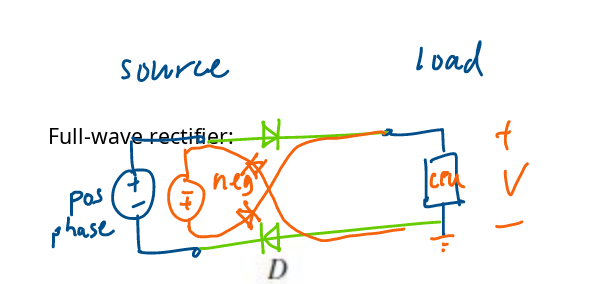 source
load
Full-wave rectifier:
+
pos
phase
+
-
neg
+
-
cpu
V
-
D